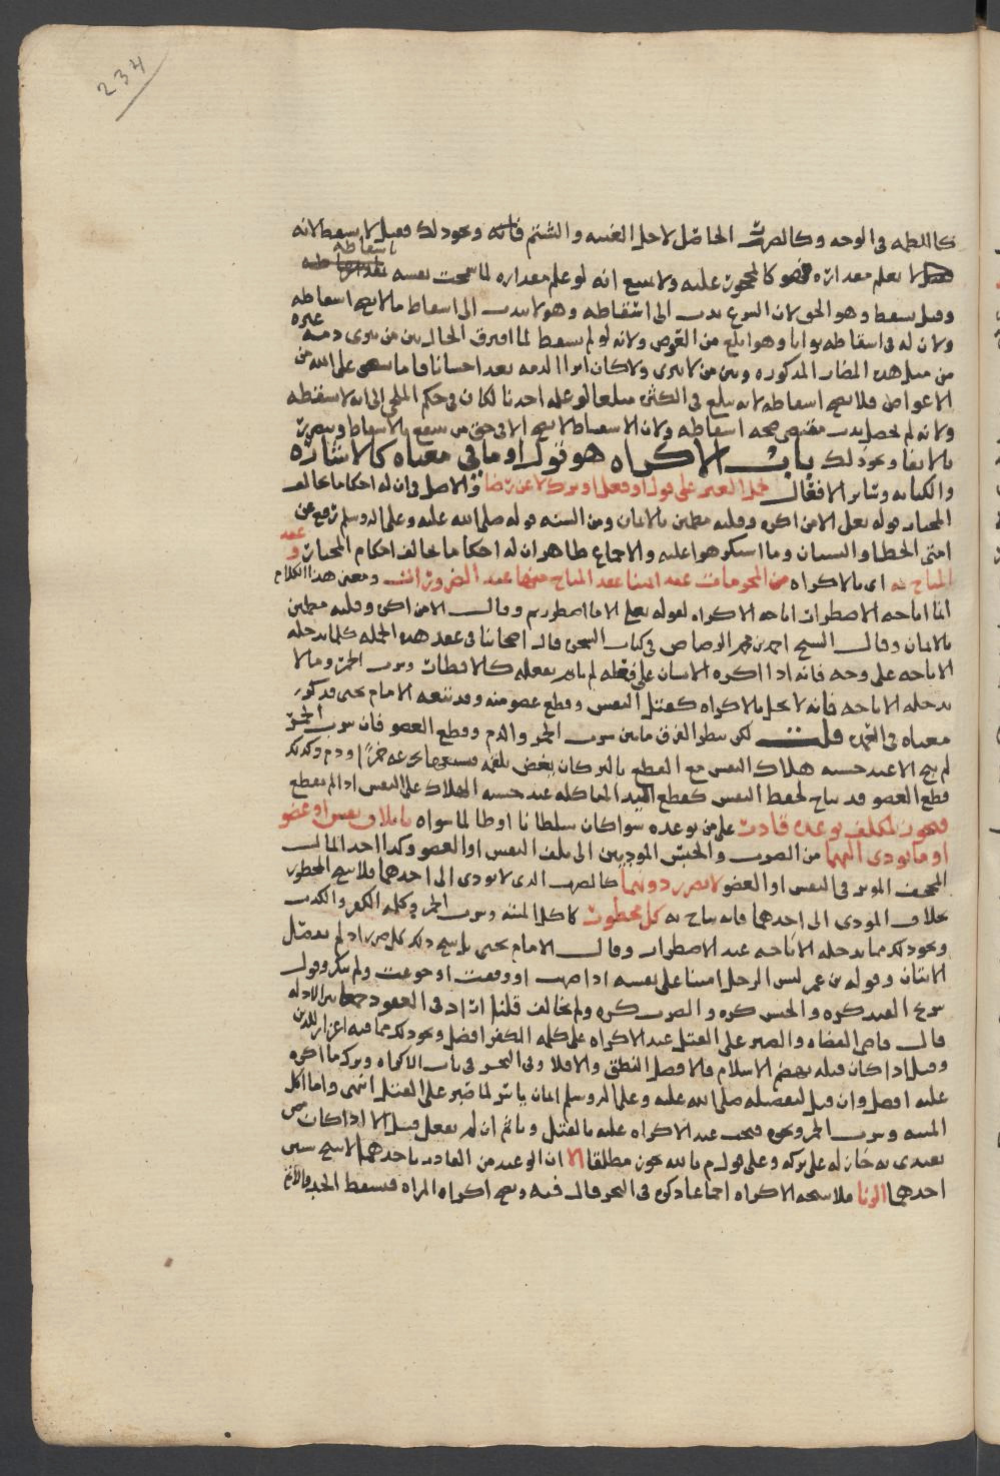 234
كاللطمه في الوجه وكالضرب الحاصل لاجل الغيبه والشتم فانه ونحو ذلك فقيل لا يسقط لانه
لا يعلم مقداره فهو كالمحجور عليه ولا يمنع انه لو علم مقداره لما سمحت نفسه باسقاطه
وقيل يسقط وهو الحق لان الشرع ندب الى اسقاطه وهو لا يندب الى اسقاط ما لا يصح اسقاطه
ولان له في اسقاطه ثوابا وهو ابلغ من العوض ولانه لو لم يسقط لما افترق الحال بين من يبري ذمه غيره
من مثل هذه المضار المذكوره وبين من لا يبري ولا كان ابرا الذمه يعد احسانا فاما على الله من
الاعواض فلا يصح اسقاطه لانه يبلغ في الكثره مبلغا لو علمه احدنا لكان في حكم الملجى الى انه لا يسقطه
ولانه لم يحصل ندب يقتضي صحه اسقاطه ولان الاسقاط لا يصح الا في حق من ينتفع بالاسقاط ويتضرر
بالابقا ونحو ذلك باب الاكراه هو قول او ما في معناه كالاشاره
والكتابه وساير الافعال حمل الغير على قول او فعل او ترك لا عن رضا والاصل في ان له احكاما تخالف
المختار قوله تعالى الا من اكره وقلبه مطمئن بالايمان ومن السنه قوله صلى الله عليه وعلى اله وسلم رفع عن
امتي الخطا والنسيان وما استكرهوا عليه والاجماع ظاهر ان له احكاما تخالف احكام المختار و عقد
المباح به اي بالاكراه من المحرمات عقد ائمتنا عقد المباح منها عند الضرورات ومعنى هذا الكلام
انما اباحه الاضطرار اباحه الاكراه لقوله تعالى الا ما اضطررتم وقال الا من اكره وقلبه مطمئن
بالايمان وقال الشيخ احمد بن محمد الرصاص في كتاب الشجره قال اصحابنا في عقد هذه الجمله كلما تدخله
الاباحه على وجه فانه اذا اكره الانسان على فعله لم ياثم بفعله كالافطار وشرب الخمر وما لا
تدخله الاباحه فانه لا يحل بالاكراه كقتل النفس وقطع عضو منه وقد تبعه الامام يحيى فذكر
معناه في العمده قلت لكن ينظر الفرق ما بين شرب الخمر والدم وقطع العضو فان شرب الخمر
لم يبح الا عند خشيه هلاك النفس مع القطع بالبر كان يغص بلقمه فيسيغها بجرعه خمر او دم وكذلك
قطع العضو قد يباح لحفظ النفس كقطع اليد المتاكله عند خشيه الهلاك على النفس اذا لم تقطع
فيجوز لمكلف توعده قادر على من توعده سوا كان سلطانا او ظالما سواه باتلاف نفس او عضو
او ما يودي اليهما من الضرب والحبس الموديين الى تلف النفس او العضو وكذا اخذ المال
المجحف الموثر في النفس او العضو لا بضرر دونهما كالضرب الذي لا يودي الى احدهما فلا يبيح المحظور
بخلاف المودي الى احدهما فانه يباح به كل محظور كاكل الميته وشرب الخمر وكلمه الكفر والكذب
ونحو ذلك مما تدخله الاباحه عند الاضطرار وقال الامام يحيى بل يبيح ذلك كل ضرر اذ لم يفصل
الاثان وقوله بن عمر ليس الرجل امينا على نفسه اذا ضرب او اوقعت او جوعت ولم ينكر وقول
شريح القيد كره والحبس كره والضرب كره ولم يخالف قلنا اراد في العقود جمعا بين الادله
قال قاضي القضاه والصبر على القتل عند الاكراه على كلمه الكفر افضل ونحو ذلك مما فيه اعزاز للدين
وقيل اذا كان قبله بعض الاسلام فالافضل النطق والا فلا وفي البحر في باب الاكراه وترك ما اكره
عليه افضل وان قتل لتفضيله صلى الله عليه وعلى اله وسلم ايمان ياسر لما صبر على القتل انتهى واما اكل
الميته وشرب الخمر ونحوه فيجب عند الاكراه عليه بالقتل وياثم ان لم يفعل قيل الا اذا كان ممن
يقتدى به جاز له على تركه وعلى قول م بالله يجوز مطلقا الا ان الوعيد من القادر باحدهما لا يبيح شيين
احدهما الزنا فلا يبيحه الاكراه اجماعا ذكره في البحر قال فيه ويصح اكراه المراه فيسقط الحد والاثم